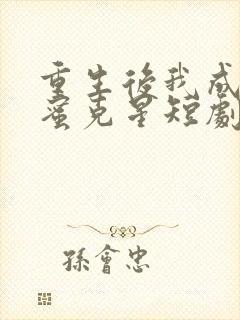 重生後我成
蜜克星短劇
孫會忠